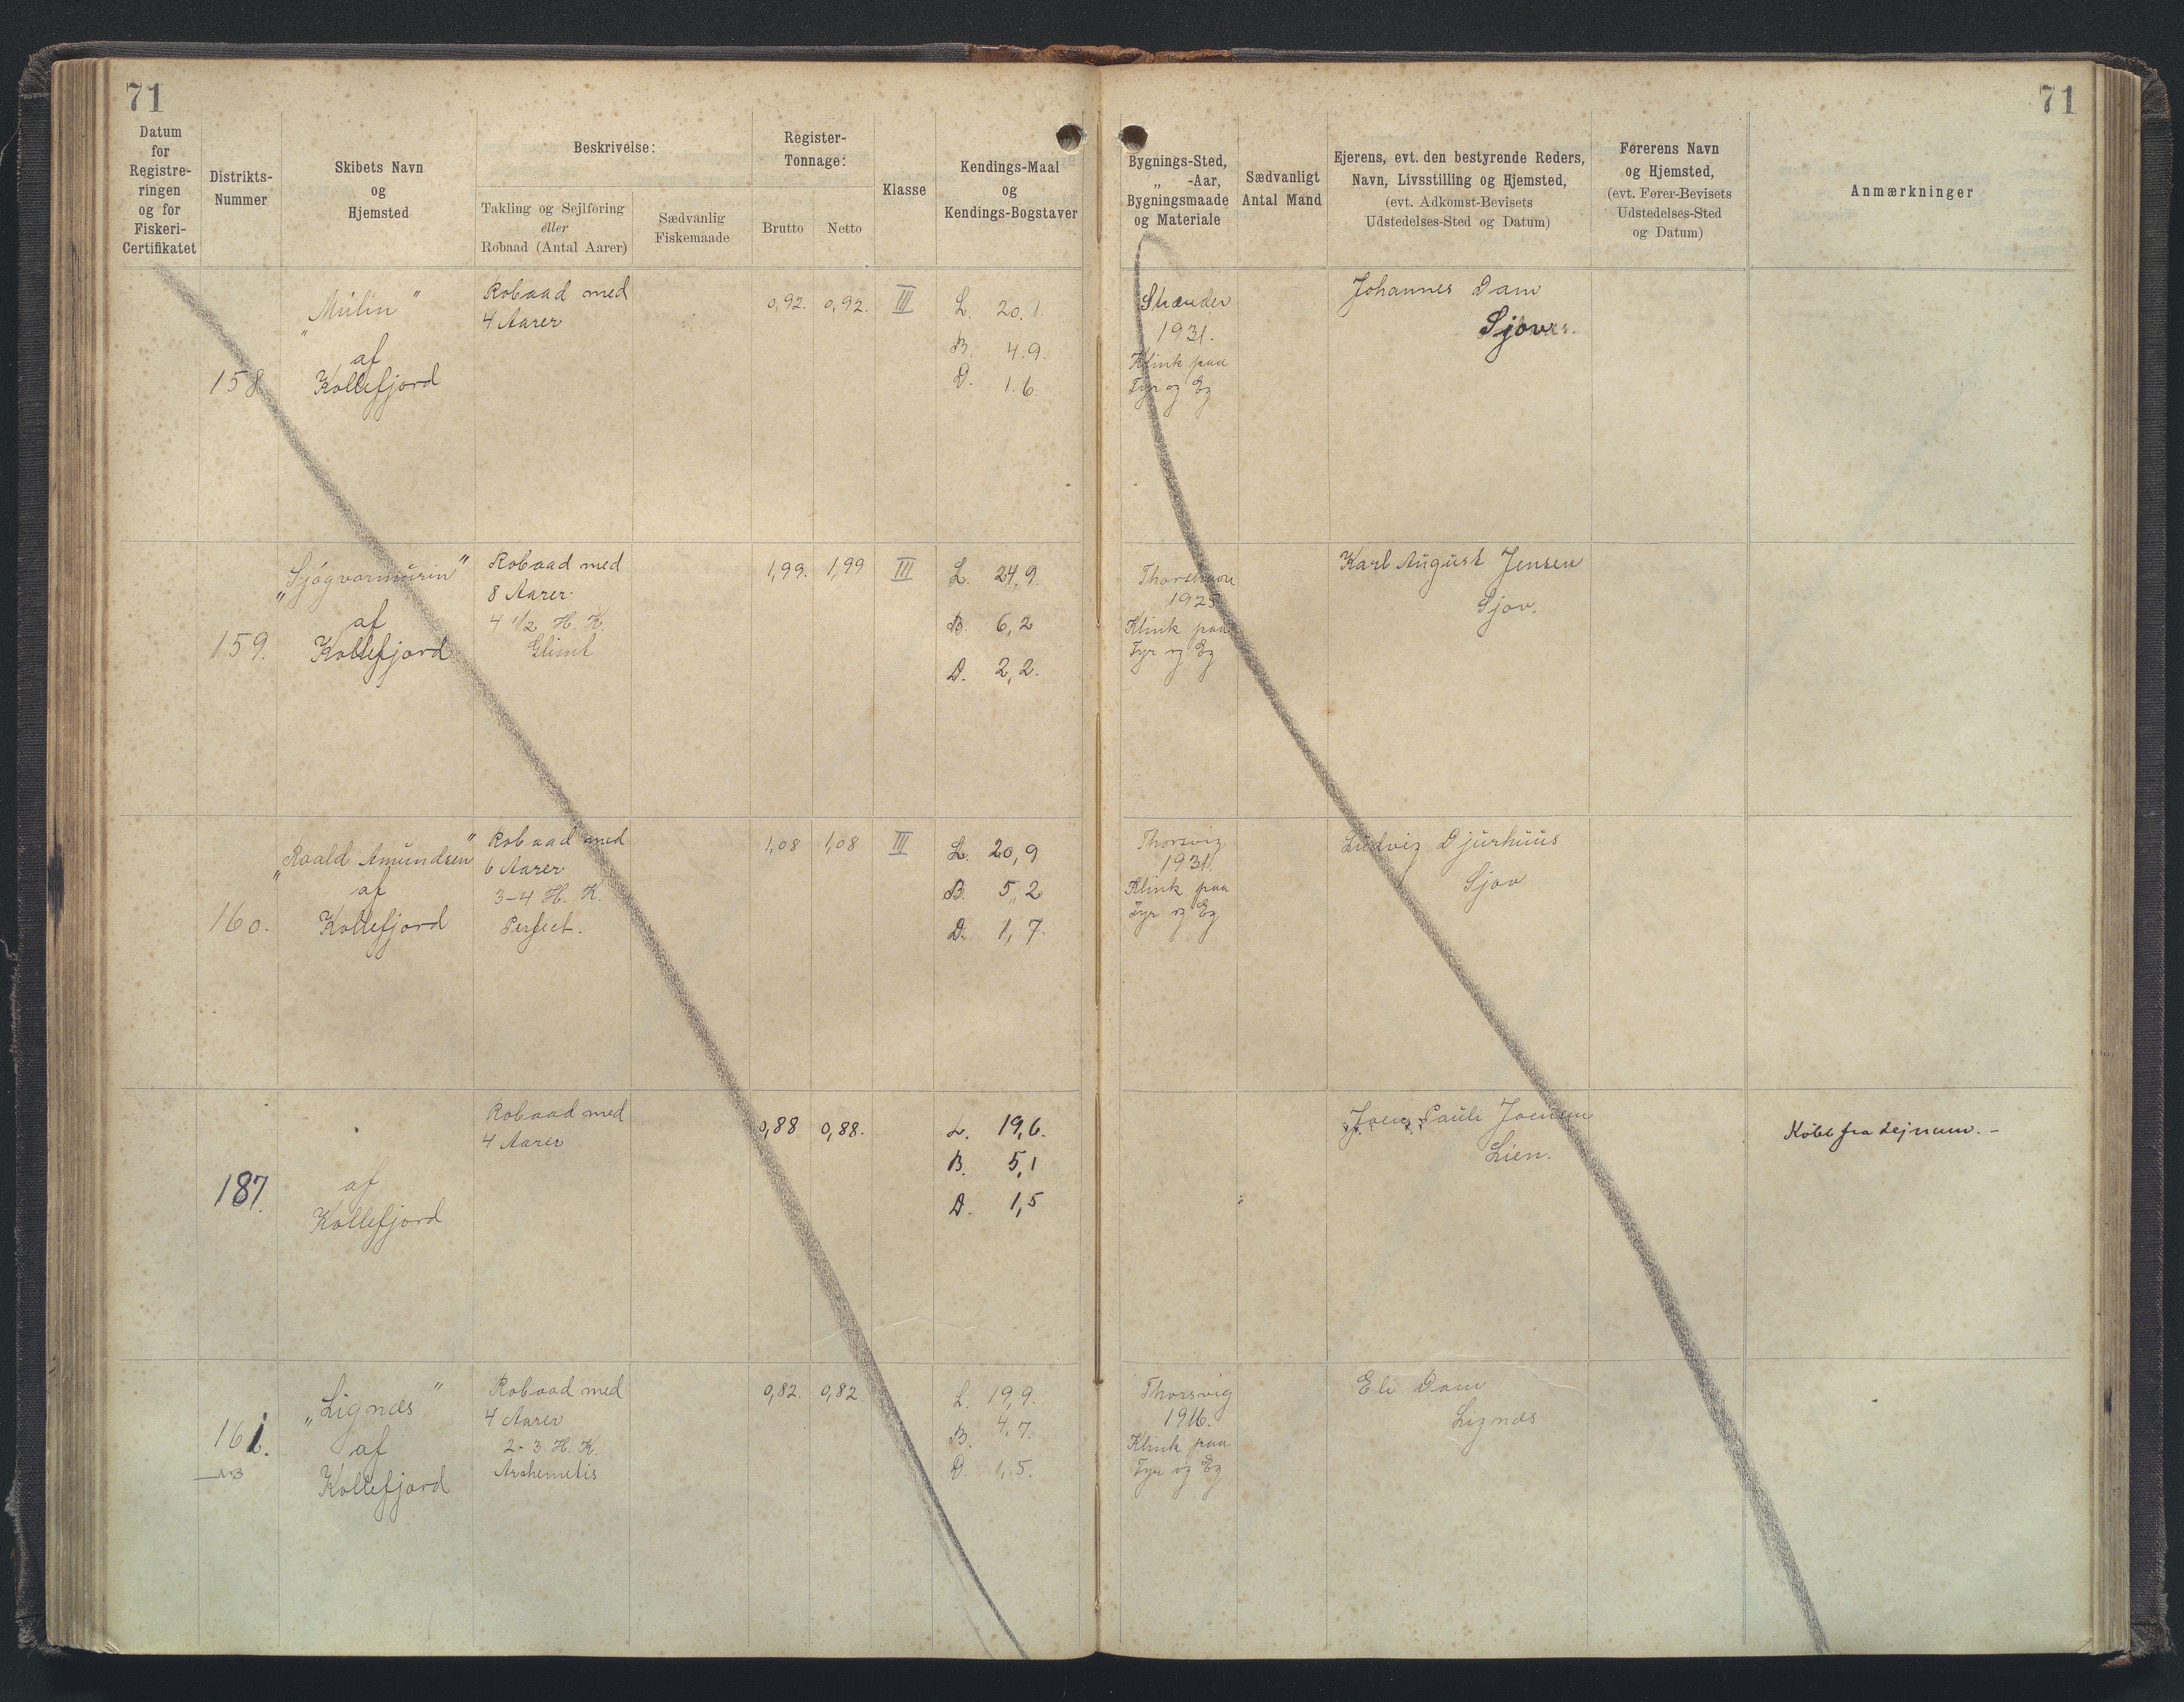 71
71
Datum
for
Registre-
ringen
og for
Fiskeri-
Certifikatet
Distrikts-
Nummer
Skibets Navn
og
Hjemsted
Beskrivelse:
Takling og Sejlføring
eller
Robaad (Antal Aarer)
Sædvanlig
Fiskemaade
Register-
Tonnage:
Brutto
Netto
Klasse
Kendings-Maal
og
Kendings-Bogstaver
Bygnings-Sted,
„ -Aar,
Bygningsmaade
og Materiale
Sædvanligt
Antal Mand
Ejerens, evt. den bestyrende Reders,
Navn, Livsstilling og Hjemsted,
(evt. Adkomst-Bevisets
Udstedelses-Sted og Datum)
Førerens Navn
og Hjemsted,
(evt. Fører-Bevisets
Udstedelses-Sted
og Datum)
Anmærkninger
158
„Múlin"
af
Kollefjord
Robaad med
4 Aarer
0,92. 0,92. III
L. 20.1.
B. 4.9.
D. 1.6.
1931.
Klink paa
Fyr og Eg
Johannes Dam
159.
af
Kollefjord
Robaad med
8 Aarer
4 1/2 H. K.
Glimt
1,99. 1,99 III
L. 24,9.
B. 6,2
D. 2,2.
Thorshavn
1925
Klink paa
Fyr og Eg
Karl August Jensen
Sjov.
160.
„Roald Amundsen"
af
Kollefjord
Robaad med
6 Aarer
3-4 H. K.
Perfect.
1,08 1,08 III
L. 20,9
B. 5,,2
D. 1,7.
Thorsvig
1931.
Klink paa
Fyr og Eg
Ludvig Djurhuus
Sjov
187.
af
Kollefjord
Robaad med
4 Aarer
0,88 0,88.
L. 19,6.
B. 5,1
D. 1,5
Pauli Joensen
Lien.
Købt fra Lejnum. -
161.
NB
„Lignæs"
af
Kollefjord
Robaad med
4 Aarer
2-3 H. K.
Archemetis
0,82. 0,82.
L. 19,9.
B. 4,7.
D. 1,5.
Thorsvig
1916.
Klink paa
Fyr og Eg
Eli Dam
Lignæs